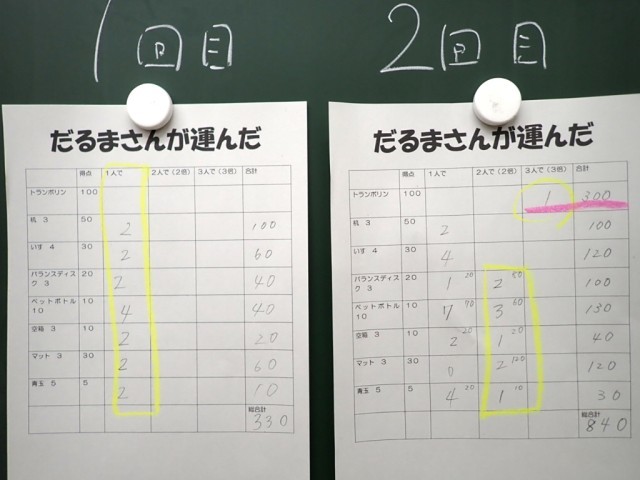 1回目
だるまさんが運んだ
得点 1人で 2人で（2倍） 3人で（3倍） 合計
トランポリン 100
机 3 50 2 100
いす 4 30 2 60
バランスディスク 3 20 2 40
ペットボトル 10 10 4 40
空箱 3 10 2 20
マット 3 30 2 60
青玉 5 5 2 10
総合計
330
2回目
だるまさんが運んだ
得点 1人で 2人で（2倍） 3人で（3倍） 合計
トランポリン 100 1 300
机 3 50 2 100
いす 4 30 4 120
バランスディスク 3 20 1 20 2 80 100
ペットボトル 10 10 7 70 3 60 130
空箱 3 10 2 20 1 20 40
マット 3 30 0 2 120 120
青玉 5 5 4 20 1 10 30
総合計
840